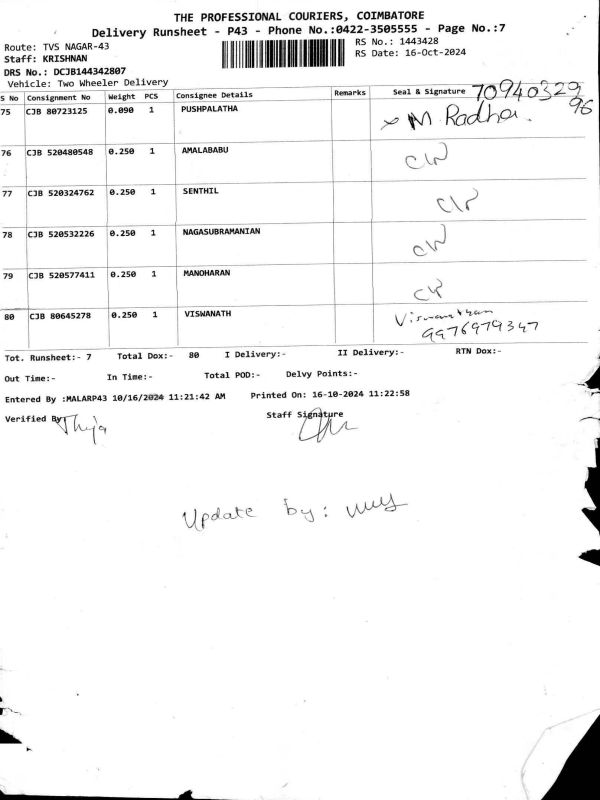 THE PROFESSIONAL COURIERS, COIMBATORE
Delivery Runsheet - P43 - Phone No.:0422-3505555 - Page No.:7
Route: TVS NAGAR-43 RS No.: 1443428
Staff: KRISHNAN RS Date: 16-Oct-2024
DRS No.: DCJB144342807
Vehicle: Two Wheeler Delivery
S No Consignment No Weight PCS Consignee Details Remarks Seal & Signature 7094032996
75 CJB 80723125 0.090 1 PUSHPALATHA M. Radha.
76 CJB 520480548 0.250 1 AMALABABU
77 CJB 520324762 0.250 1 SENTHIL
78 CJB 520532226 0.250 1 NAGASUBRAMANIAN
79 CJB 520577411 0.250 1 MANOHARAN
80 CJB 80645278 0.250 1 VISWANATH
9976979347
Tot. Runsheet:- 7 Total Dox:- 80 I Delivery:- II Delivery:- RTN Dox:-
Out Time:- In Time:- Total POD:- Delvy Points:-
Entered By :MALARP43 10/16/2024 11:21:42 AM Printed On: 16-10-2024 11:22:58
Verified By Staff Signature
Update by: